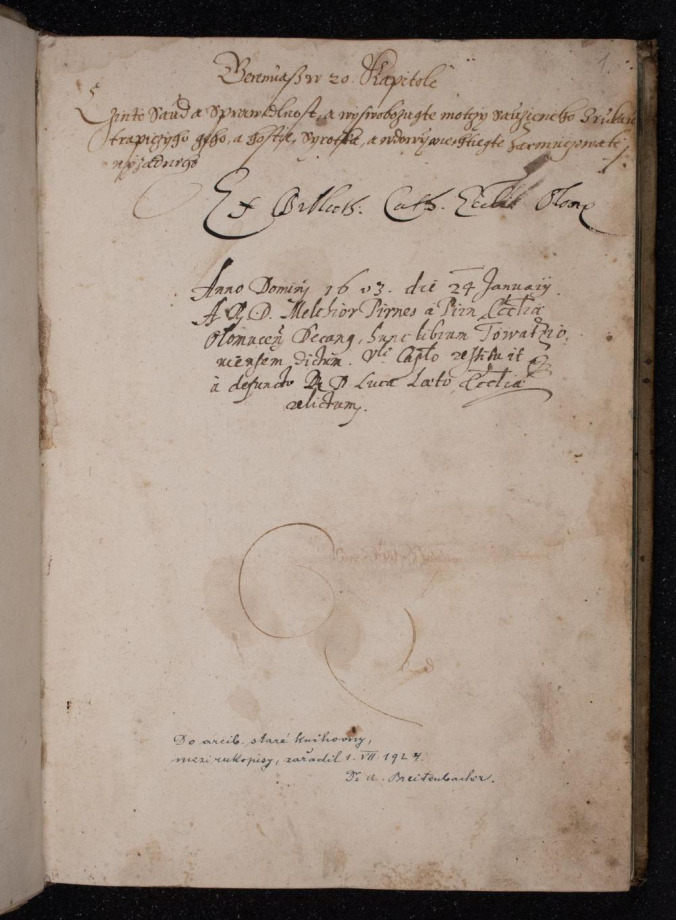 1.
Jeremiass w 20. Kapitole
Czinte Saud a Sprawedlnost, a wyswobozugte mocy sauzeneho z ruky
trapiczyho geho, a hostie, Syrotka, a wdowy nerhliegte zarmuczowati
Ex Biblioth. Cath. Eccliae Olom
Anno Dominj 1603. die 24 January
A R D. Melchior Pirnes a Pirn Eccliae
Olomucen Decanq, hunc librum Towaczio,
uiensem dictum. Vli Caplo restituit
a defuncto R D Luca Laeto, Eccliae
relictum.
Do arcib. staré knihovny,
mezi rukopisy, zařadil 1. VII. 1924.
Dr. A. Breitenbacher.